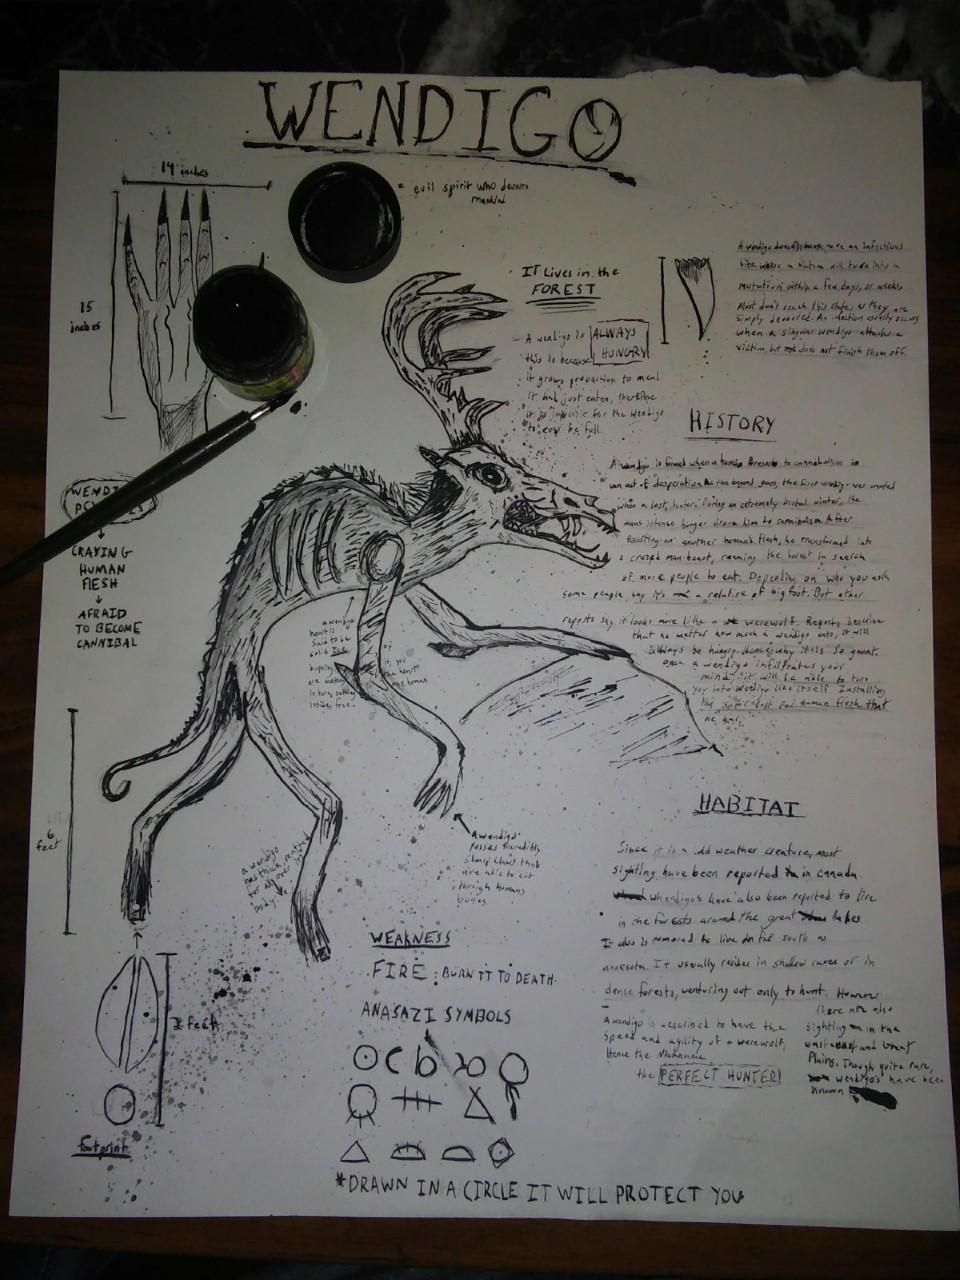 WENDIGO
14 inches
= evil spirit who devours
mankind
15
inches
IT Lives in the
FOREST
A wendigo is ALWAYS
HUNGRY
this is because
it grows proportion to meal
it had just eaten, therefore
it is for the wendigo
to ever be full.
A wendigo an infectious
bite where a victim will turn into a
mutation within a few days, or weeks.
Most don't reach this state as they are
simply devoured. An infection usually occurs
when a singular wendigo attacks a
victim, but does not finish them off.
HISTORY
A wendigo is formed when a human resorts to cannibalism in
an act of desperation. the first wendigo was created
when a lost hunter. During an extremely brutal winter, the
mans intense hunger drove him to cannibalism. After
feasting on another human's flesh, he transformed into
a crazed man-beast, roaming the forest in search
of more people to eat. Depending on who you ask
some people say it's a relative of bigfoot. But other
reports say it looks more like a werewolf. Reports
that no matter how much a wendigo eats, it will
always be hungry. Hence why it is so gaunt.
once a wendigo infiltrates your
mind, it will be able to turn
you into wendigo like itself. Installing
the lust for human flesh that
he has.
WENDIGO
CRAVING
HUMAN
FLESH
AFRAID
TO BECOME
CANNIBAL
a wendigo
heart is
said to be
solid Ice.
6
feet
A wendigo
posses incredibly
sharp claws that
are able to cut
through humans
bones
a wendigo
has thick matted
fur all over its
body
feet
footprint
WEAKNESS
FIRE: BURN IT TO DEATH.
ANASAZI SYMBOLS
*DRAWN IN A CIRCLE IT WILL PROTECT YOU
HABITAT
Since it is a cold weather creature, most
sighting have been reported in canada.
Whendigos have also been reported to live
in the forests around the great lakes
It also is rumored to live as far south as
minnesota. It usually resides in shallow caves or in
dense forests, venturing out only to hunt. However
there are also
sighting in the
west and Great
Plains. Though quite rare,
wendigos have been
known
A wendigo is described to have the
speed and agility of a werewolf,
Hence the Nickname
the PERFECT HUNTER